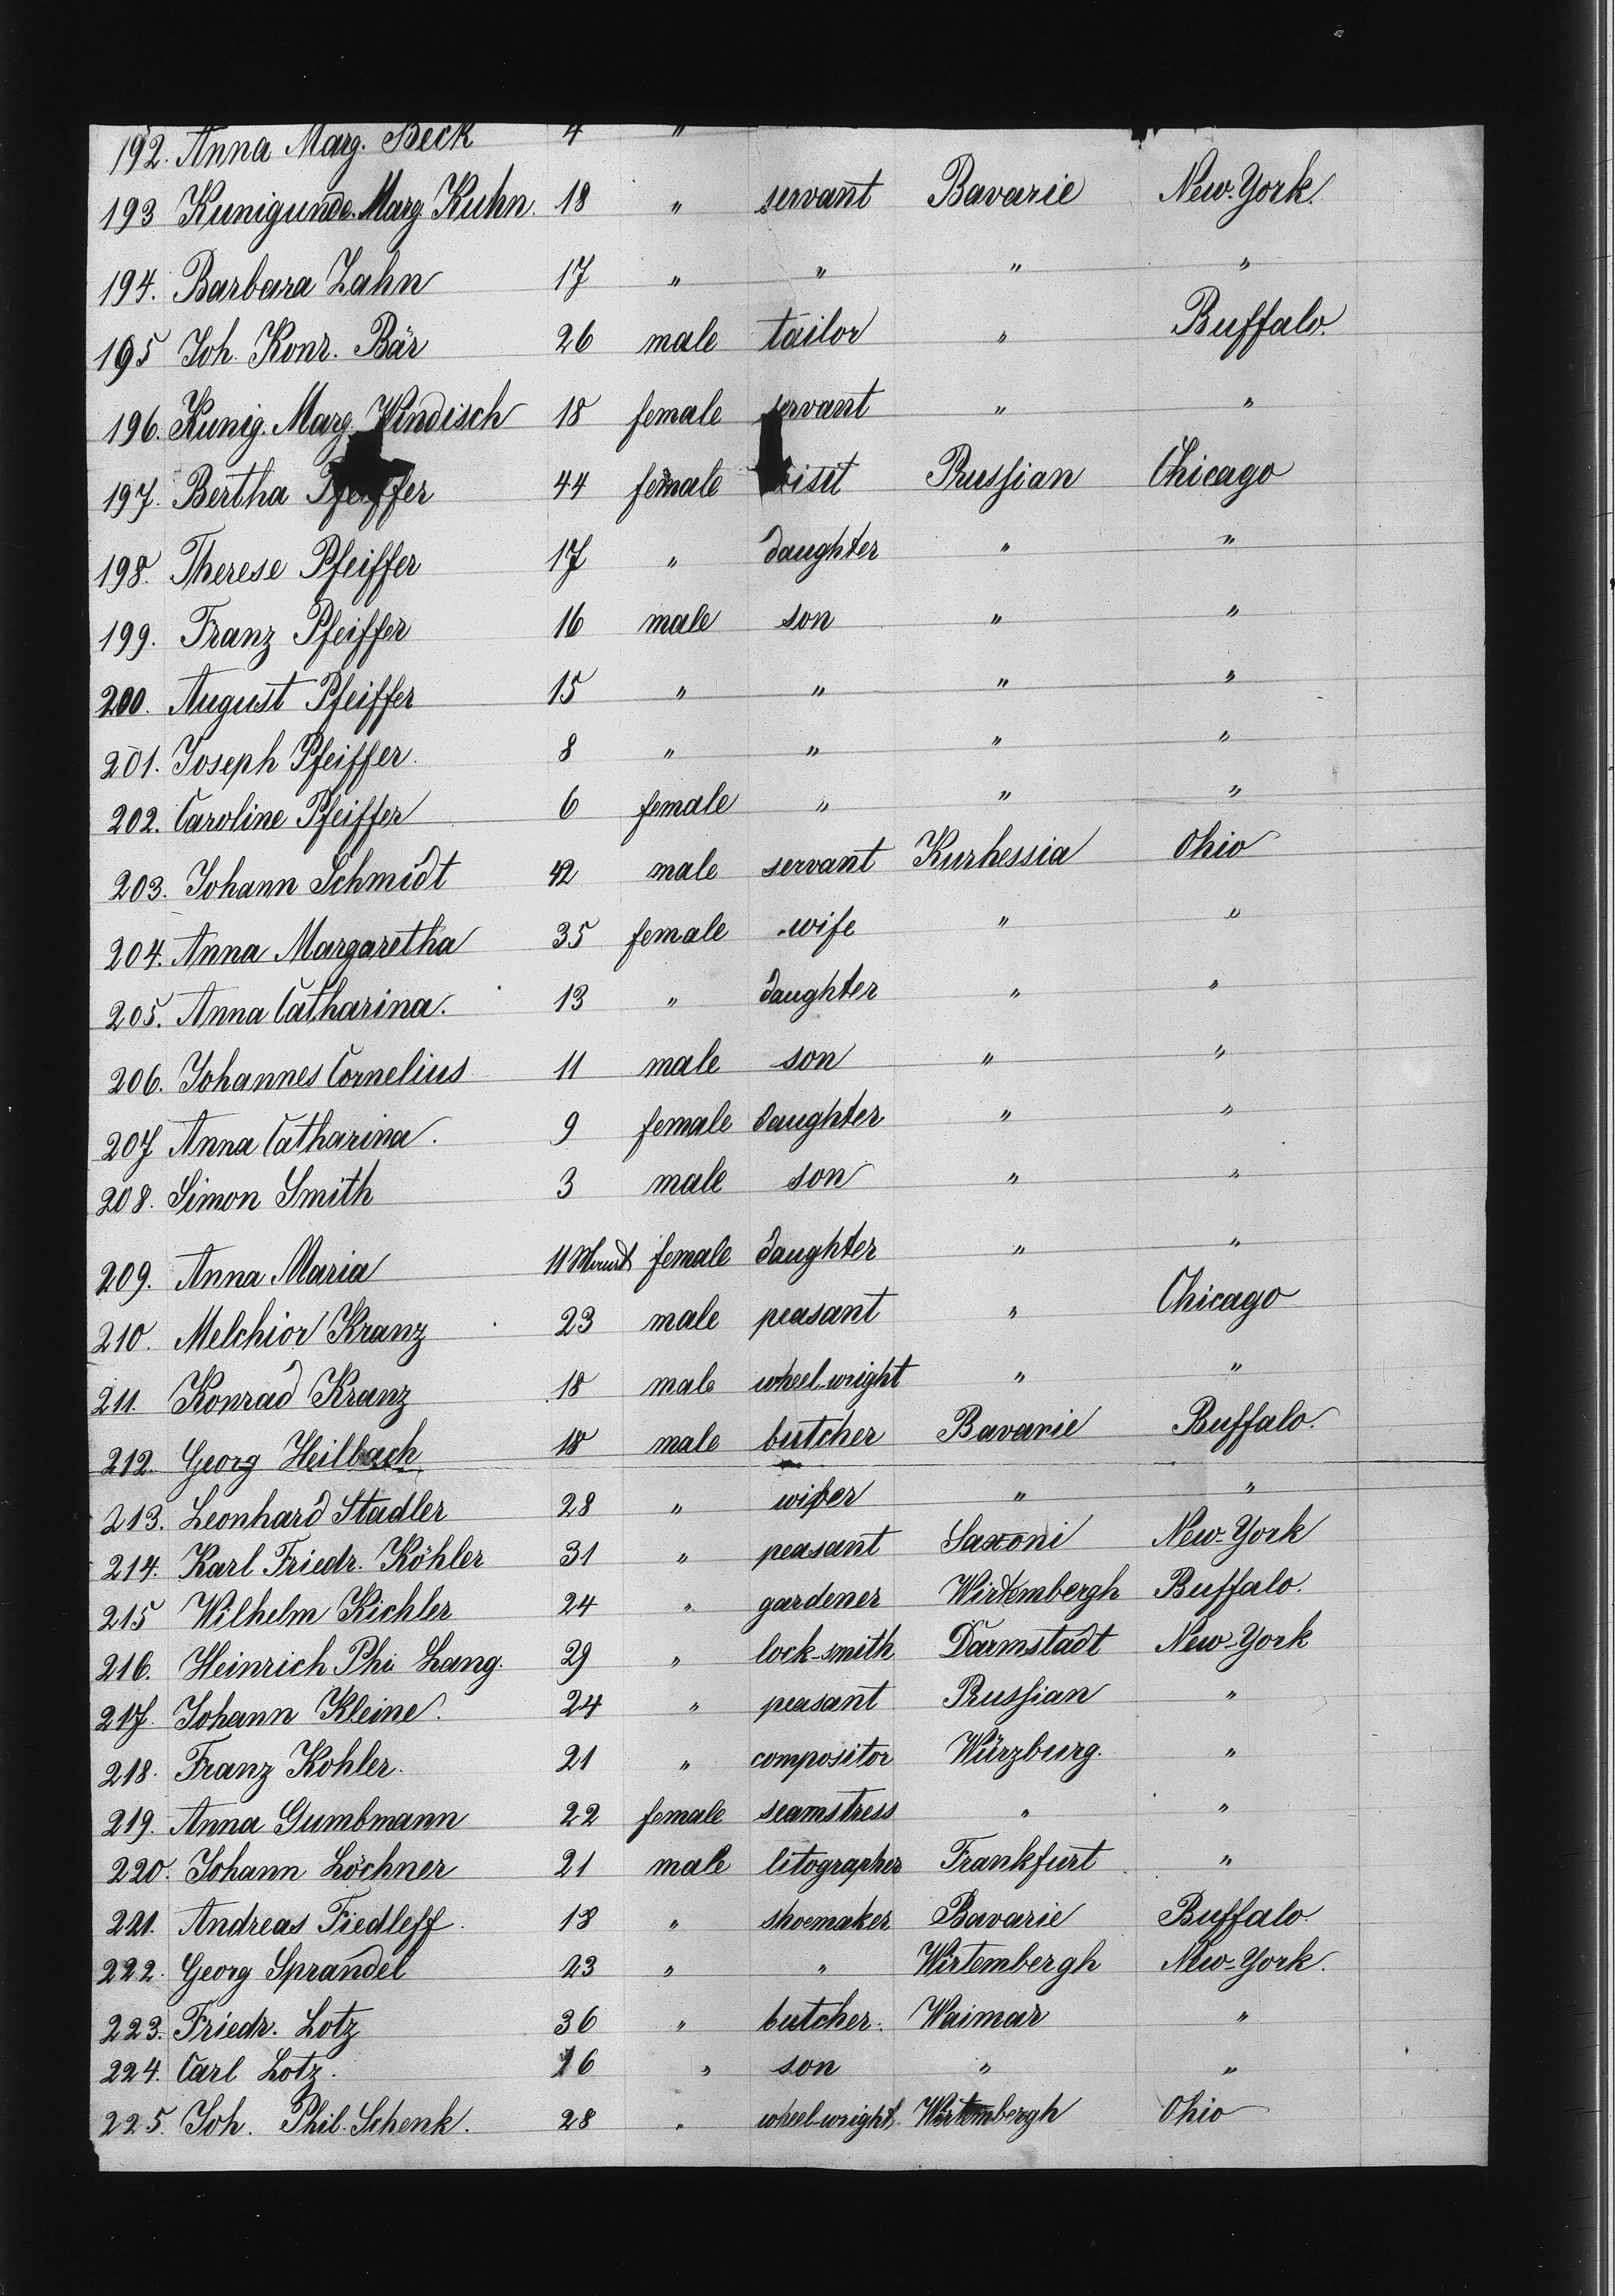 192. Anna Marg. Beck 4 "
193 Kunigunde. Marg. Kuhn. 18 " servant Bavarie New-York.
194. Barbara Zahn 17 " " " "
195 Joh. Konr. Bär 26 male tailor " Buffalo.
196. Kunig. Marg. Windisch 18 female servant " "
197. Bertha Pfeiffer 44 female Prussian Chicago
198. Therese Pfeiffer 17 " daughter " "
199. Franz Pfeiffer 16 male son " "
200. August Pfeiffer 15 " " " "
201. Joseph Pfeiffer. 8 " " " "
202. Caroline Pfeiffer 6 female " " "
203. Johann Schmidt 42 male servant Kurhessia Ohio
204. Anna Margaretha 35 female wife " "
205. Anna Catharina. 13 " daughter " "
206. Johannes Cornelius 11 male son " "
207 Anna Catharina. 9 female daughter " "
208. Simon Smith 3 male son " "
209. Anna Maria 11 female daughter " "
210. Melchior Kranz 23 male peasant " Chicago
211. Konrad Kranz 18 male wheel-wright " "
212. Georg Heilbach 18 male butcher Bavarie Buffalo.
213. Leonhard Stadler 28 " " "
214. Karl Friedr. Köhler 31 " peasant Saxoni New-York
215 Wilhelm Kichler 24 " gardener Wirtembergh Buffalo.
216. Heinrich Phi Lang. 29 " lock-smith Darmstadt New-York
217. Johann Kleine. 24 " peasant Prussian "
218. Franz Kohler. 21 " compositor Würzburg. "
219. Anna Gumbmann 22 female seamstress " "
220. Johann Löchner 21 male litographer Frankfurt "
221. Andreas Fiedleff. 18 " shoemaker Bavarie Buffalo.
222. Georg Sprandel 23 " " Wirtembergh New-York.
223. Friedr. Lotz 36 " butcher. Waimar "
224. Carl Lotz. 16 " son " "
225. Joh. Phil. Schenk. 28 " wheel-wright Wirtembergh Ohio